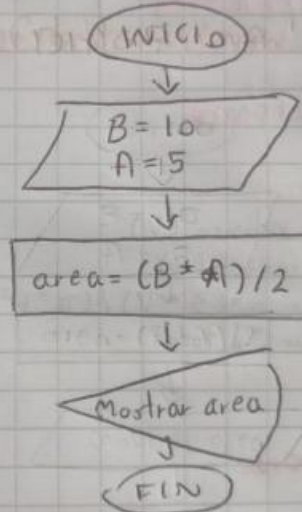 INICIO
B = 10
A = 5
area = (B * A) / 2
Mostrar area
FIN